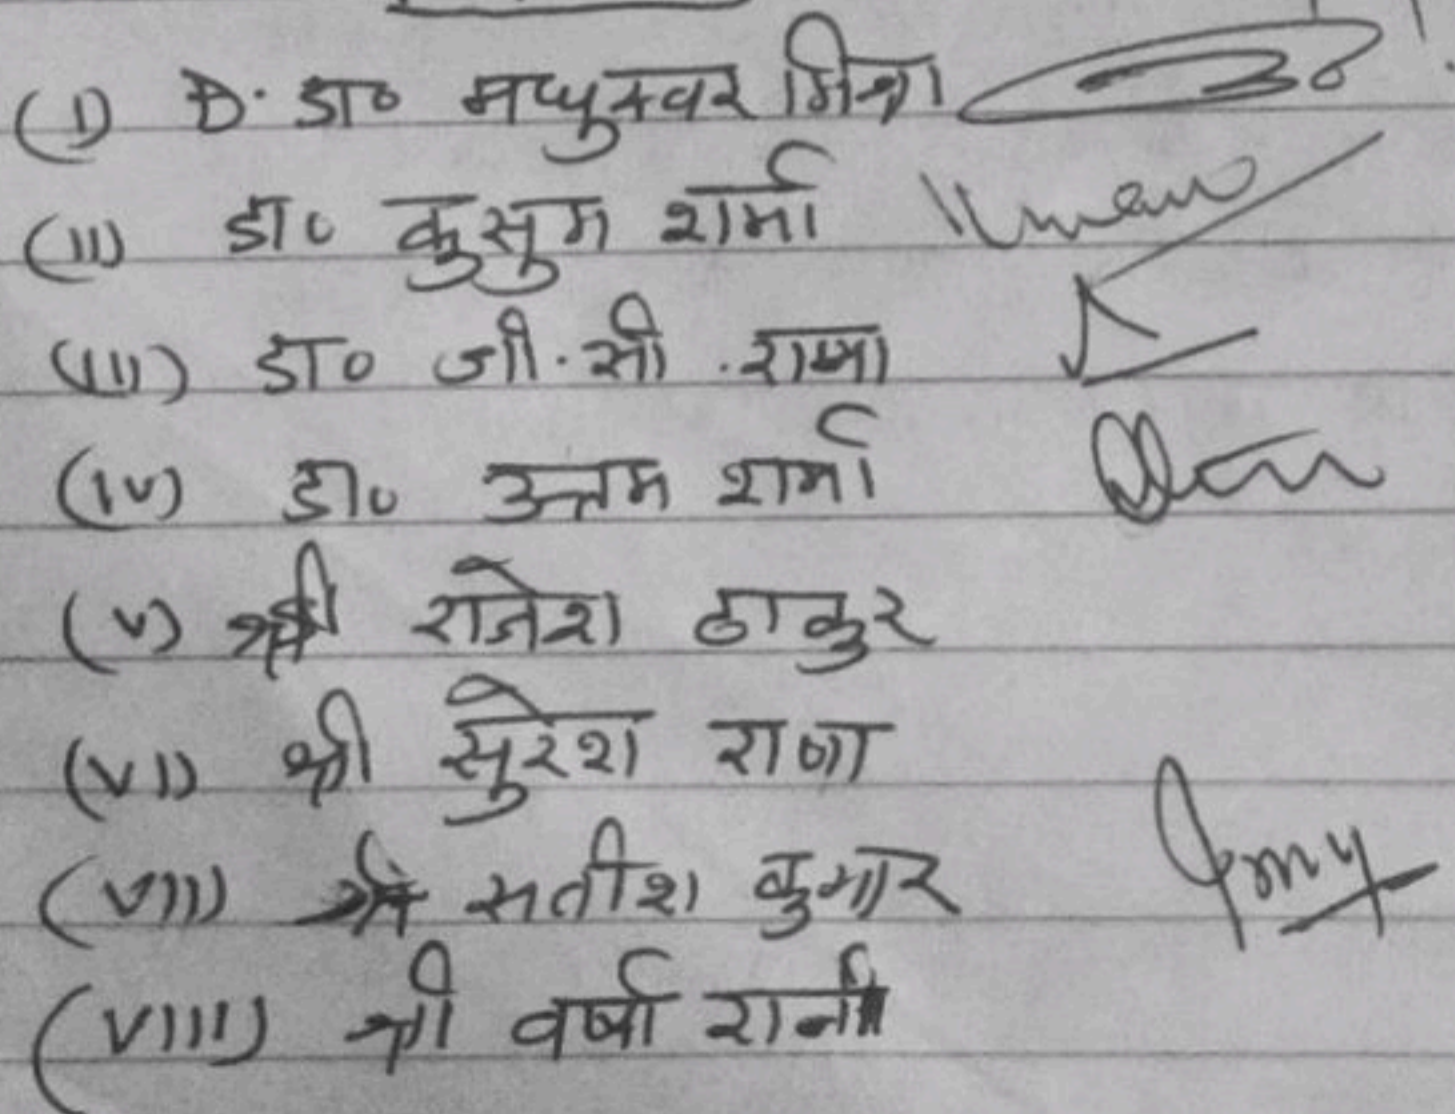 (I) डा० मिश्रा
(II) डा० कुसुम शर्मा
(III) डा० जी.सी. राणा
(IV) डा० उत्तम शर्मा
(V) श्री राजेश ठाकुर
(VI) श्री सुरेश राणा
(VII) श्री सतीश कुमार
(VIII) श्री वर्षा रानी